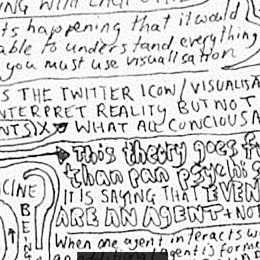 ts happening that it would
able to understand everything
you must use visualisation
S THE TWITTER ICON / VISUALISA
NTERPRET REALITY BUT NOT
NTS) WHAT ALL CONCIOUSA
This theory goes f
than pan psychi
IT IS SAYING THAT EVEN
ARE AN AGENT + NOT
CINE
BEING
When one agent interacts w
agent is forme